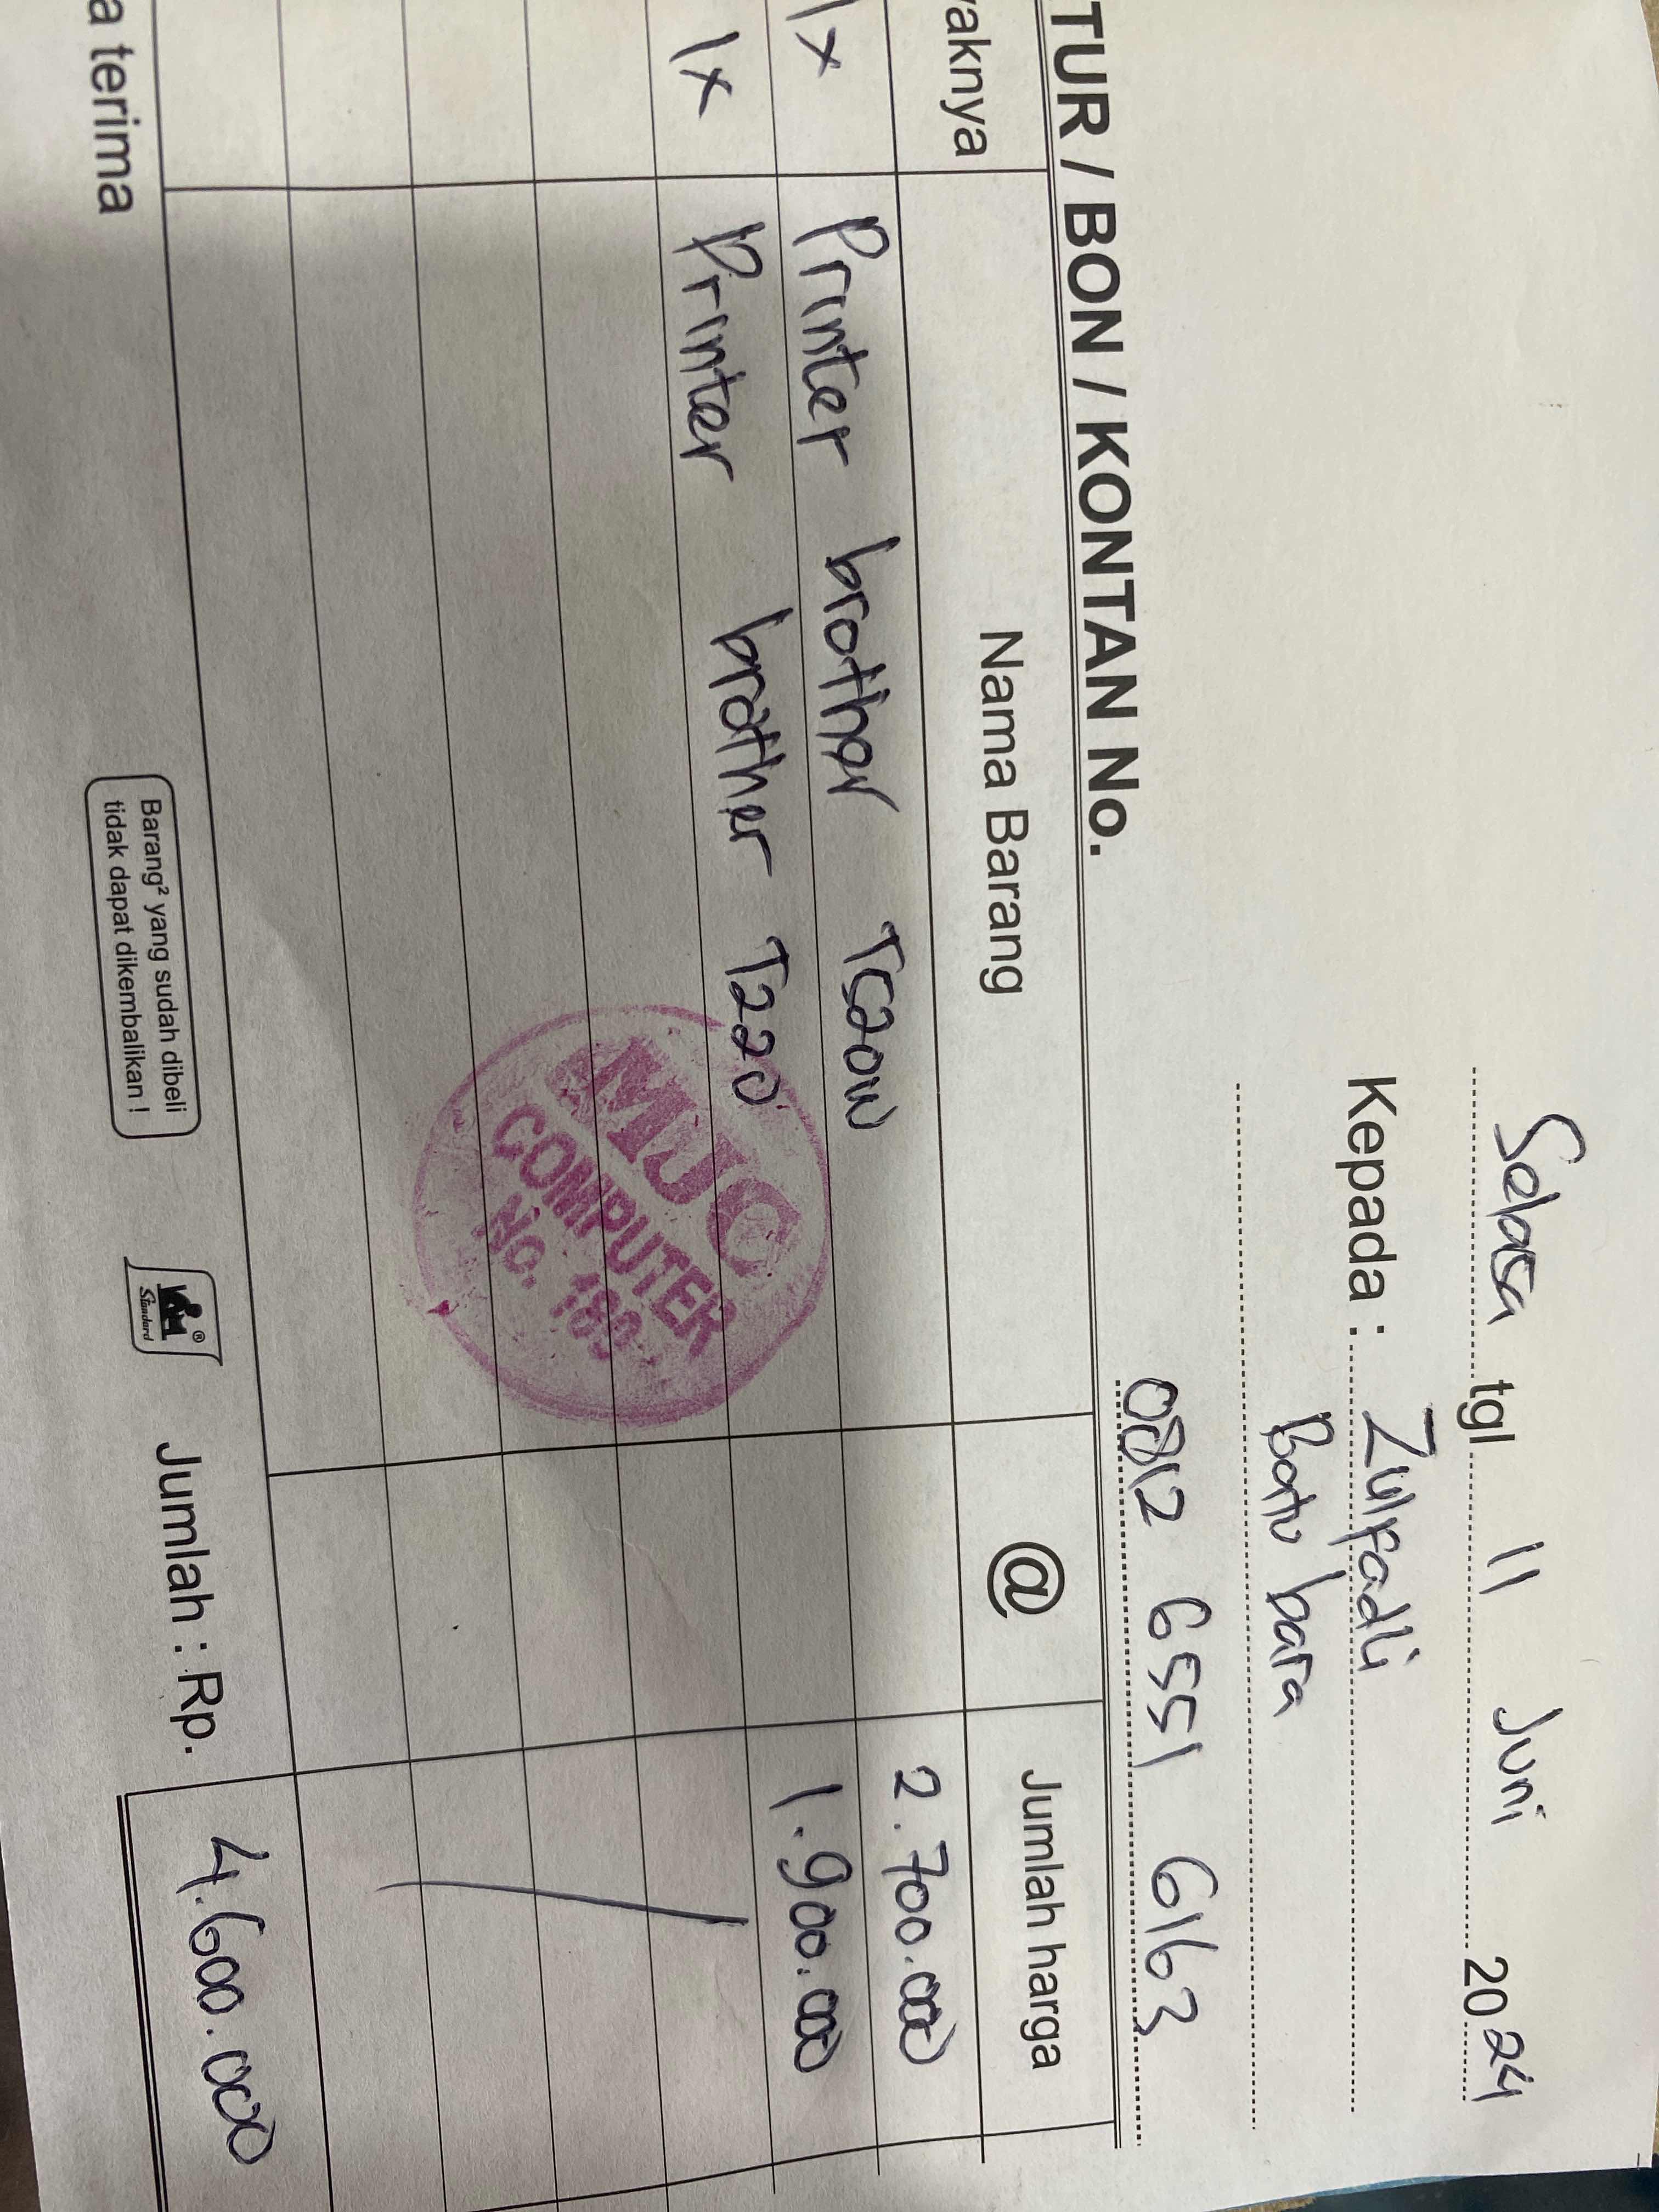 Selasa tgl 11 Juni 2024
Kepada : Zulfadli
Batu bara
0812 6551 6163
TUR / BON / KONTAN No.
yaknya Nama Barang @ Jumlah harga
1x Printer brother T520W 2.700.000
1x Printer brother T220 1.900.000
MJC
COMPUTER
No. 189
a terima
Barang² yang sudah dibeli
tidak dapat dikembalikan !
Standard
®
Jumlah : Rp. 4.600.000